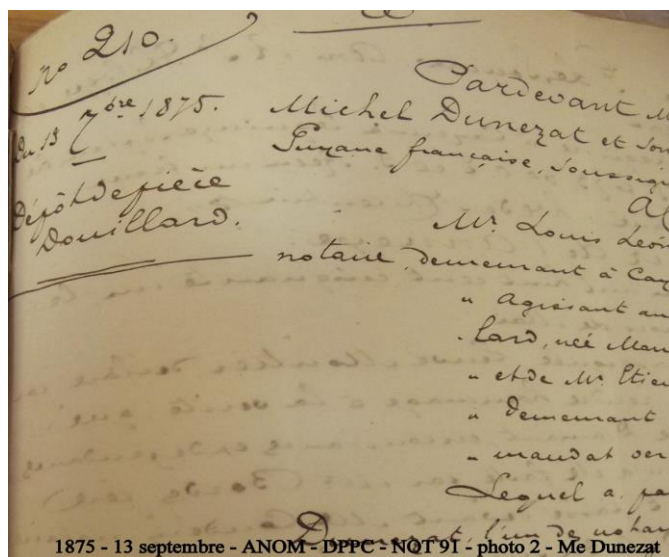 No 210.
Du 13 7bre 1875.
Dépôt de pièce
Douillard.
Pardevant M
Michel Dunezat et son
Guyane française, soussig
A
Mr. Louis Léon
notaire, demeurant à Cay
" Agissant au
lard, née Mar
" et de Mr. Etien
" demeurant
" mandat ver
Lequel a, pa
Dunezat, l'un de notai
1875 - 13 septembre - ANOM - DPPC - NOT 91 - photo 2 - Me Dunezat